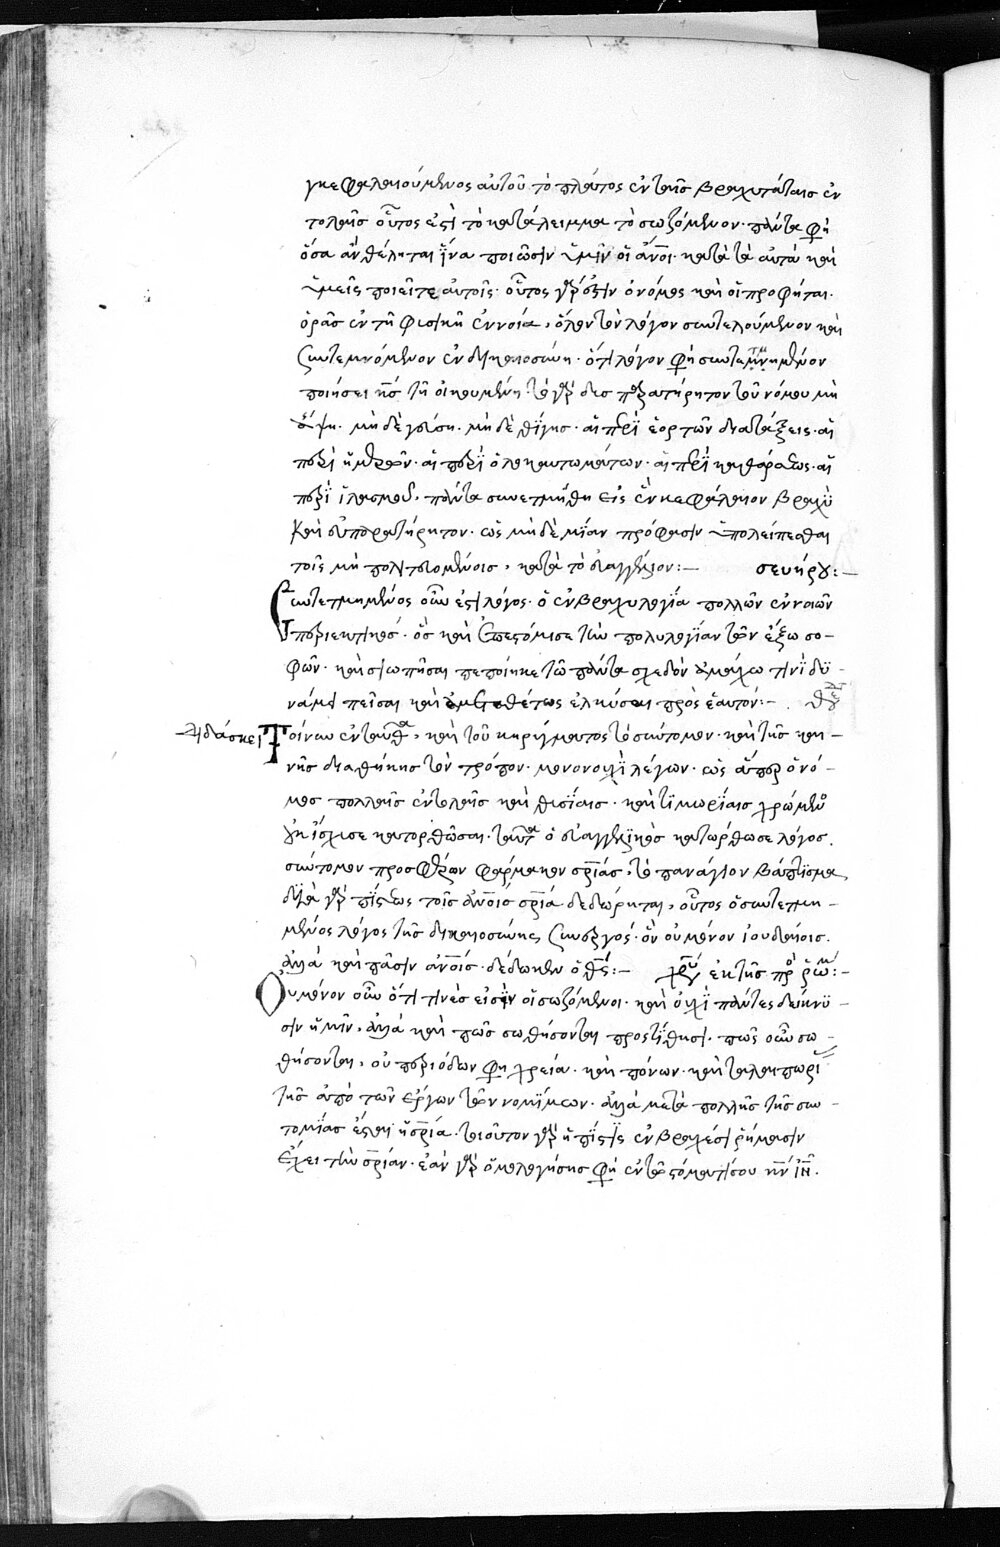 γκεφαλαιούμενος αὐτοῦ τὸ πλάτος ἐν ταῖς βραχυτάταις ἐν
τολαῖς οὗτος ἐστὶ τὸ κατάλειμμα τὸ σωζόμενον· πάντα φη
ὅσα ἂν θέλητε ἵνα ποιῶσιν ὑμῖν οἱ ἄνοι· κατὰ τὰ αὐτὰ καὶ
ὑμεῖς ποιεῖτε αὐτοῖς· οὗτος γάρ ἐστιν ὁ νόμος καὶ οἱ προφῆται·
ὁρᾶς ἐν τῇ φυσικῇ ἐννοία, ὅλον τὸν λόγον συντελούμενον καὶ
συντεμνόμενον ἐν δικαιοσύνη· ὅτι λόγον φη συντετμημένον
ποιήσει κς τῇ οἰκουμένη· τὸ γὰρ δυσπαρατήρητον τοῦ νόμου μὴ
ἅψη· μὴ δὲ γεύση· μὴ δὲ θίγης· αἱ περὶ ἑορτῶν διατάξεις· αἱ
περὶ ἡμερῶν· αἱ περὶ ὁλοκαυτωμάτων· αἱ περὶ καθάρσεως· αἱ
περὶ ἱλασμοῦ, πάντα συνετμήθη εἰς ἓν κεφάλαιον βραχὺ
καὶ εὐπαρατήρητον· ὡς μὴ δὲ μίαν πρόφασιν ὑπολείπεσθαι
τοῖς μὴ πολιτευομένοις, κατὰ τὸ εὐαγγέλιον:— σευήρου:—
Συντετμημένος οὖν ἐστὶ λόγος· ὁ ἐν βραχυλογία πολλῶν ἐννοιῶν
περιεκτικός· ὃς καὶ ἐπεστόμισε τὴν πολυλογίαν τῶν ἔξω σο-
φῶν· καὶ σιωπῆσαι πεποίηκε τῶ πάντα σχεδὸν ἀμάχω τινὶ δυ-
νάμει πεῖσαι καὶ ἑλκύσαι πρὸς ἑαυτόν:—
διδάσκει Τοίνυν ἐνταῦθα, καὶ τοῦ κηρύγματος τὸ σύντομον· καὶ τῆς και-
νῆς διαθήκης τὸν τρόπον· μονονουχὶ λέγων· ὡς ἅπερ ὁ νό-
μος πολλαῖς ἐντολαῖς καὶ θυσίαις· καὶ τιμωρίαις χρώμενος
οὐκ ἴσχυσε κατορθῶσαι· ταῦτα ὁ εὐαγγελικὸς κατώρθωσε λόγος·
σύντομον προσφέρων φάρμακον σρίας, τὸ πανάγιον βάπτισμα,
διὰ γὰρ πίστεως τοῖς ἀνοις σρία δεδώρηται, οὗτος ὁ συντετμη-
μένος λόγος τῆς δικαιοσύνης συνεργός· ὃν οὐ μόνον ἰουδαίοις·
ἀλλὰ καὶ πᾶσιν ἀνοις· δέδωκεν ὁ θς:— χρυ ἐκ τῆς πρ ρωμ:—
Οὐ μόνον οὖν ὅτι τινὲς εἰσὶν οἱ σωζόμενοι· καὶ οὐχὶ πάντες δείκνυ-
σιν ἡμῖν, ἀλλὰ καὶ πῶς σωθήσονται προστίθησι· πῶς οὖν σω-
θήσονται, οὐ περιόδων φη χρεία· καὶ πόνων· καὶ ταλαιπωρί
τῆς ἀπὸ τῶν ἔργων τῶν νομίμων· ἀλλὰ μετὰ πολλῆς τῆς συν-
τομίας ἔσται ἡ σρία· τοιοῦτον γὰρ ἡ πίστις ἐν βραχέσι ῥήμασιν
ἔχει τὴν σρίαν· ἐὰν γὰρ ὁμολογήσης φη ἐν τῶ στόματί σου κν ιν·